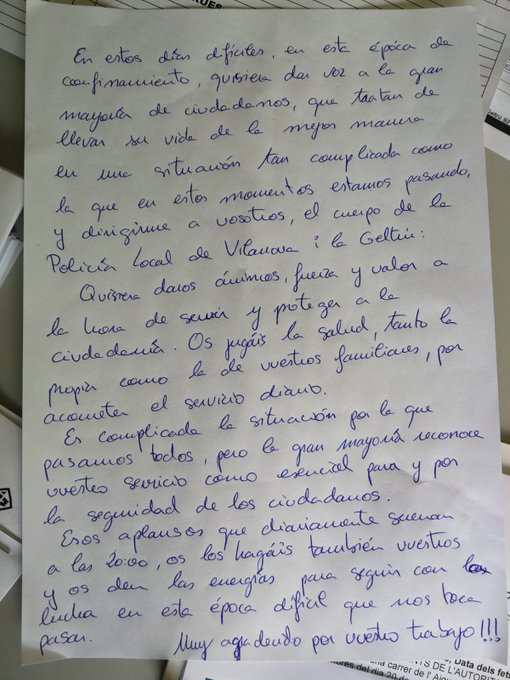 En estos días difíciles, en esta época de
confinamiento, quisiera dar voz a la gran
mayoría de ciudadanos, que tratan de
llevar su vida de la mejor manera
en una situación tan complicada como
la que en estos momentos estamos pasando,
y dirigirme a vosotros, el cuerpo de la
Policía Local de Vilanova i la Geltrú:
Quisiera daros ánimos, fuerza y valor a
la hora de servir y proteger a la
ciudadanía. Os jugáis la salud, tanto la
propia como la de vuestros familiares, por
acometer el servicio diario.
Es complicada la situación por la que
pasamos todos, pero la gran mayoría reconoce
vuestro servicio como esencial para y por
la seguridad de los ciudadanos.
Esos aplausos que diariamente suenan
a las 20:00, os los hagáis también vuestros
y os den las energías para seguir con la
lucha en esta época difícil que nos toca
pasar.
Muy agradecido por vuestro trabajo!!!
Data dels fets
DE L'AUTORIT
una carrer de l'Aigu
del dia 20 de